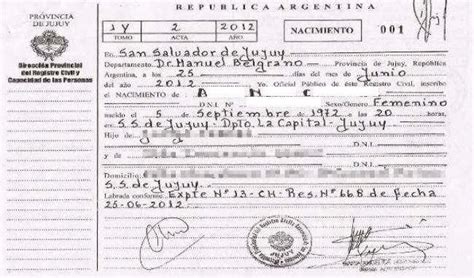 REPUBLICA ARGENTINA
PROVINCIA
DE JUJUY
Dirección Provincial
del Registro Civil y
Capacidad de las Personas
IV 2 2012
TOMO ACTA AÑO
NACIMIENTO 001
En San Salvador de Jujuy
Departamento Dr. Manuel Belgrano Provincia de Jujuy, República
Argentina, a los 25 días del mes de Junio
del año 2012 Yo, Oficial Público de éste Registro Civil, inscribo
el NACIMIENTO de B N C
D.N.I. Nº Sexo/Género Femenino
nacido el 5 de Septiembre de 1972 a las 20 horas,
en S.S. de Jujuy - Dpto. La Capital - Jujuy
Hijo de
D.N.I.
y de
D.N.I.
Domicilio
S.S. de Jujuy
Labrada conforme: Expte Nº 13 - CH - Res. Nº 668 de fecha
25-06-2012